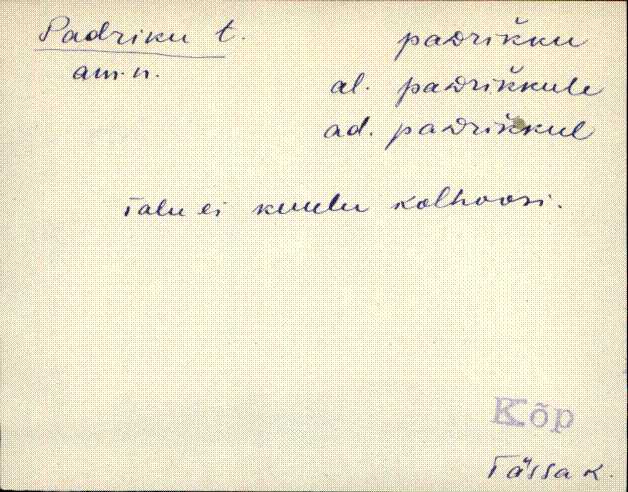 Padriku t. paᴅrikku
am. n. al. paᴅrikkule
ad. paᴅrikkul
Talu ei kuulu kolhoosi.
Kõp
Tässa k.